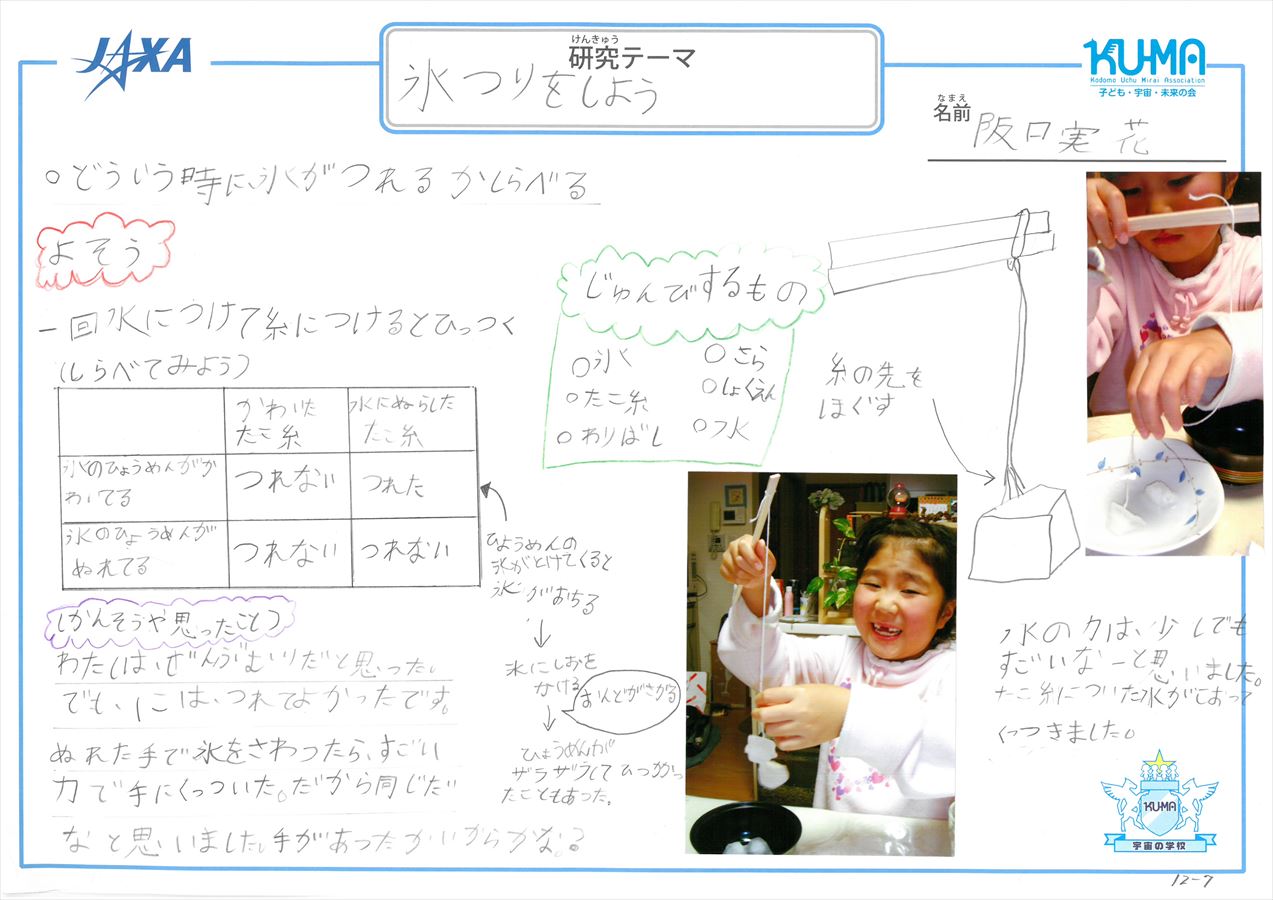 JAXA
けんきゅう
研究テーマ
氷つりをしよう
KU-MA
Kodomo Uchu Mirai Association
子ども・宇宙・未来の会
なまえ
名前 阪口実花
○どういう時に、氷がつれるかしらべる
よそう
一回水につけて糸につけるとひっつく
(しらべてみよう)
かわいたたこ糸
水にぬらしたたこ糸
氷のひょうめんがかわいてる
つれない
つれた
氷のひょうめんがぬれてる
つれない
つれない
ひょうめんの
氷がとけてくると
氷がおちる
↓
氷にしおを
かける
おんどがさがる
↓
ひょうめんが
ザラザラしてひっかかっ
たこともあった。
じゅんびするもの
○氷
○さら
○たこ糸
○しょくえん
○わりばし
○水
糸の先を
ほぐす
(かんそうや思ったこと)
わたしは、ぜんぶむりだと思った。
でも、1こは、つれてよかったです。
ぬれた手で氷をさわったら、すごい
力で手にくっついた。だから同じだ
なと思いました。手があったかいからかな?
水の力は、少しでも
すごいなーと思いました。
たこ糸についた水がこおって
くっつきました。
KU-MA
宇宙の学校
12-7